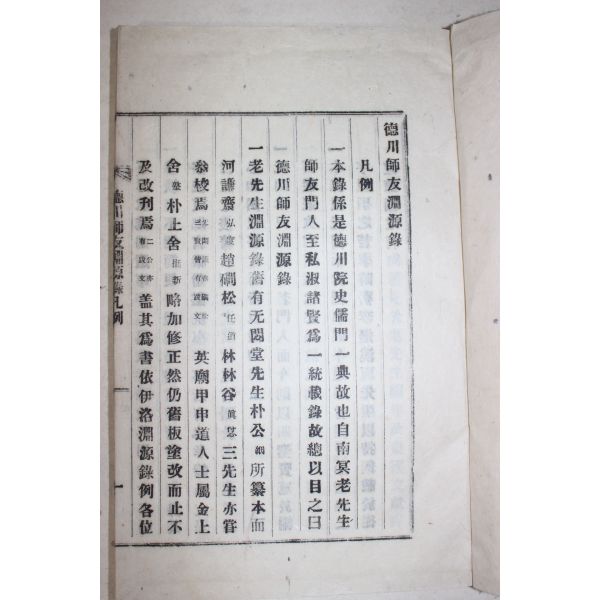 德川師友淵源錄
凡例
一本錄係是德川院史儒門一典故也自南冥老先生
師友門人至私淑諸賢爲一統載錄故總以目之曰
德川師友淵源錄
一老先生淵源錄舊有无悶堂先生朴公絪所纂本而
河謙齋弘度趙澗松任道林林谷眞怤三先生亦嘗
叅校焉三賢皆有跋文英廟甲申道人士屬金上
舍墪朴上舍挺新略加修正然仍舊板塗改而止不
及改刊焉二公亦有跋文盖其爲書依伊洛淵源錄例各位
德川師友淵源錄凡例
一